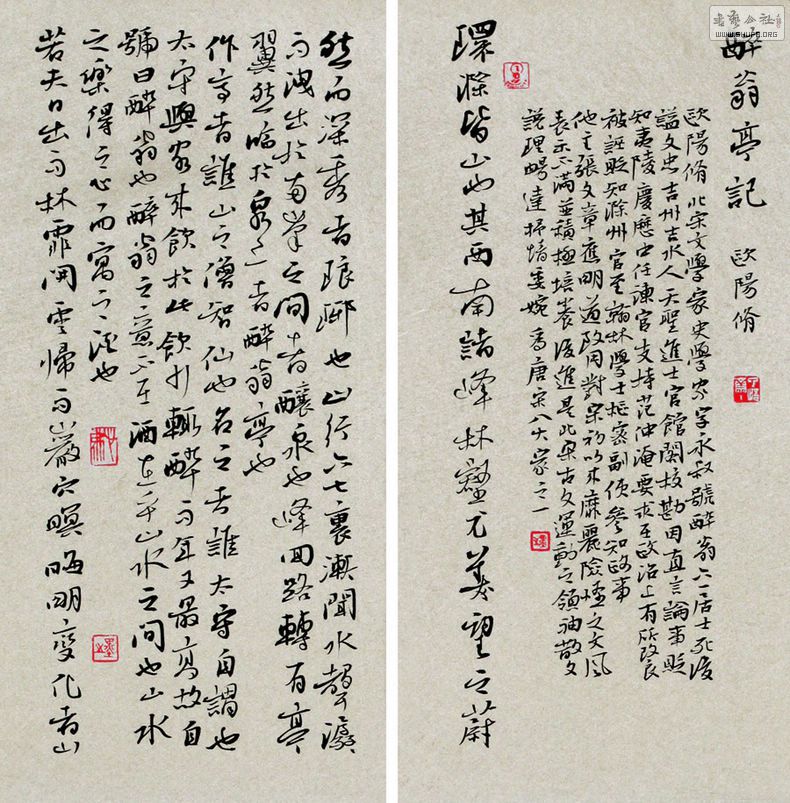 醉翁亭記 歐陽脩
歐陽脩北宋文學家史學家字永叔號醉翁六一居士死後
謚文忠吉州吉水人天聖進士官館閣校勘因直言論事貶
知夷陵慶歷中任諫官支持范仲淹要求在政治上有所改良
被誣貶知滁州官至翰林學士樞密副使參知政事
他主張文章應明道致用對宋初以來靡麗險怪之文風
表示不滿並積極培養後進是北宋古文運動之領袖散文
說理暢達抒情委婉為唐宋八大家之一
環滁皆山也其西南諸峰林壑尤美望之蔚
然而深秀者琅邪也山行六七裏漸聞水聲潺
而洩出於兩峰之間者釀泉也峰回路轉有亭
翼然臨於泉上者醉翁亭也
作亭者誰山之僧智仙也名之者誰太守自謂也
太守與客來飲於此飲少輒醉而年又最高故自
號曰醉翁也醉翁之意不在酒在乎山水之間也山水
之樂得之心而寓之酒也
若夫日出而林霏開雲歸而巖穴暝晦明變化者山
書藝公社
WWW.SHUFA.ORG